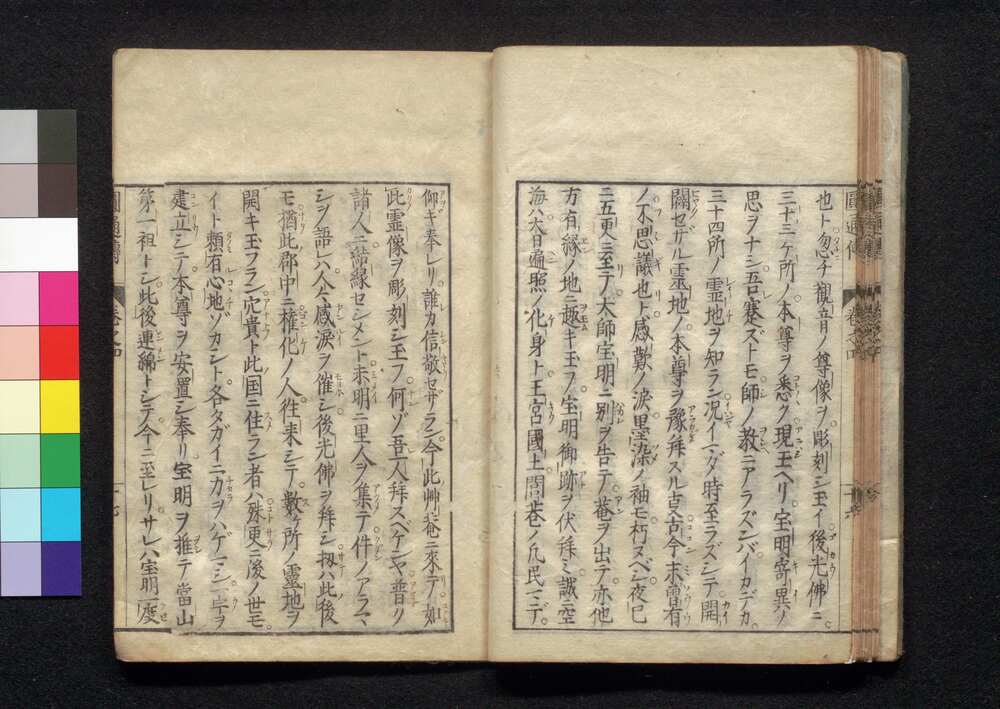 也ト忽チ観音ノ尊像ヲ彫刻シ玉イ後光佛ニ
三十三ケ所ノ本尊ヲ悉ク現玉ヘリ宝明寄異ノ
思ヲナシ吾寔ズトモ師ノ教ニアラズンバイカデカ
三十四所ノ霊地ヲ知ラン况イマダ時至ラズシテ開
闢セザル霊地ノ本尊ヲ豫拜スル㕝古今末曽有
ノ不思議也ト感歎ノ涙墨染ノ袖モ朽ヌベシ夜已
ニ五更ニ至テ大師宝明ニ別ヲ告テ菴ヲ出テ亦他
方有縁ノ地ニ趣キ玉フ宝明御跡ヲ伏拜ミ誠ニ空
海ハ大日遍照ノ化身ト王宮國土閭巷ノ凡民マデ
仰ギ奉レリ誰カ信敬セザラン今此艸菴ニ來テ如
此霊像ヲ彫刻シ玉フ何ゾ吾一人拜スベケンヤ普ク
諸人ニ結縁セシメント未明ニ里人ヲ集テ件ノアラマ
シヲ語レハ人々感涙ヲ催シ後光佛ヲ拜シ扨ハ此後
モ猶此郡中ニ権化ノ人往来シテ數ケ所ノ霊地ヲ
開キ玉フラン穴貴ト此国ニ住ラン者ハ殊更ニ後ノ世モ
イト頼有心地ゾカシト各タガイニカヲハゲマシ一宇ヲ
建立シテ本尊ヲ安置シ奉リ宝明ヲ推テ當山
第一祖トシ此後連綿トシテ今ニ至レリサレハ宝明一度